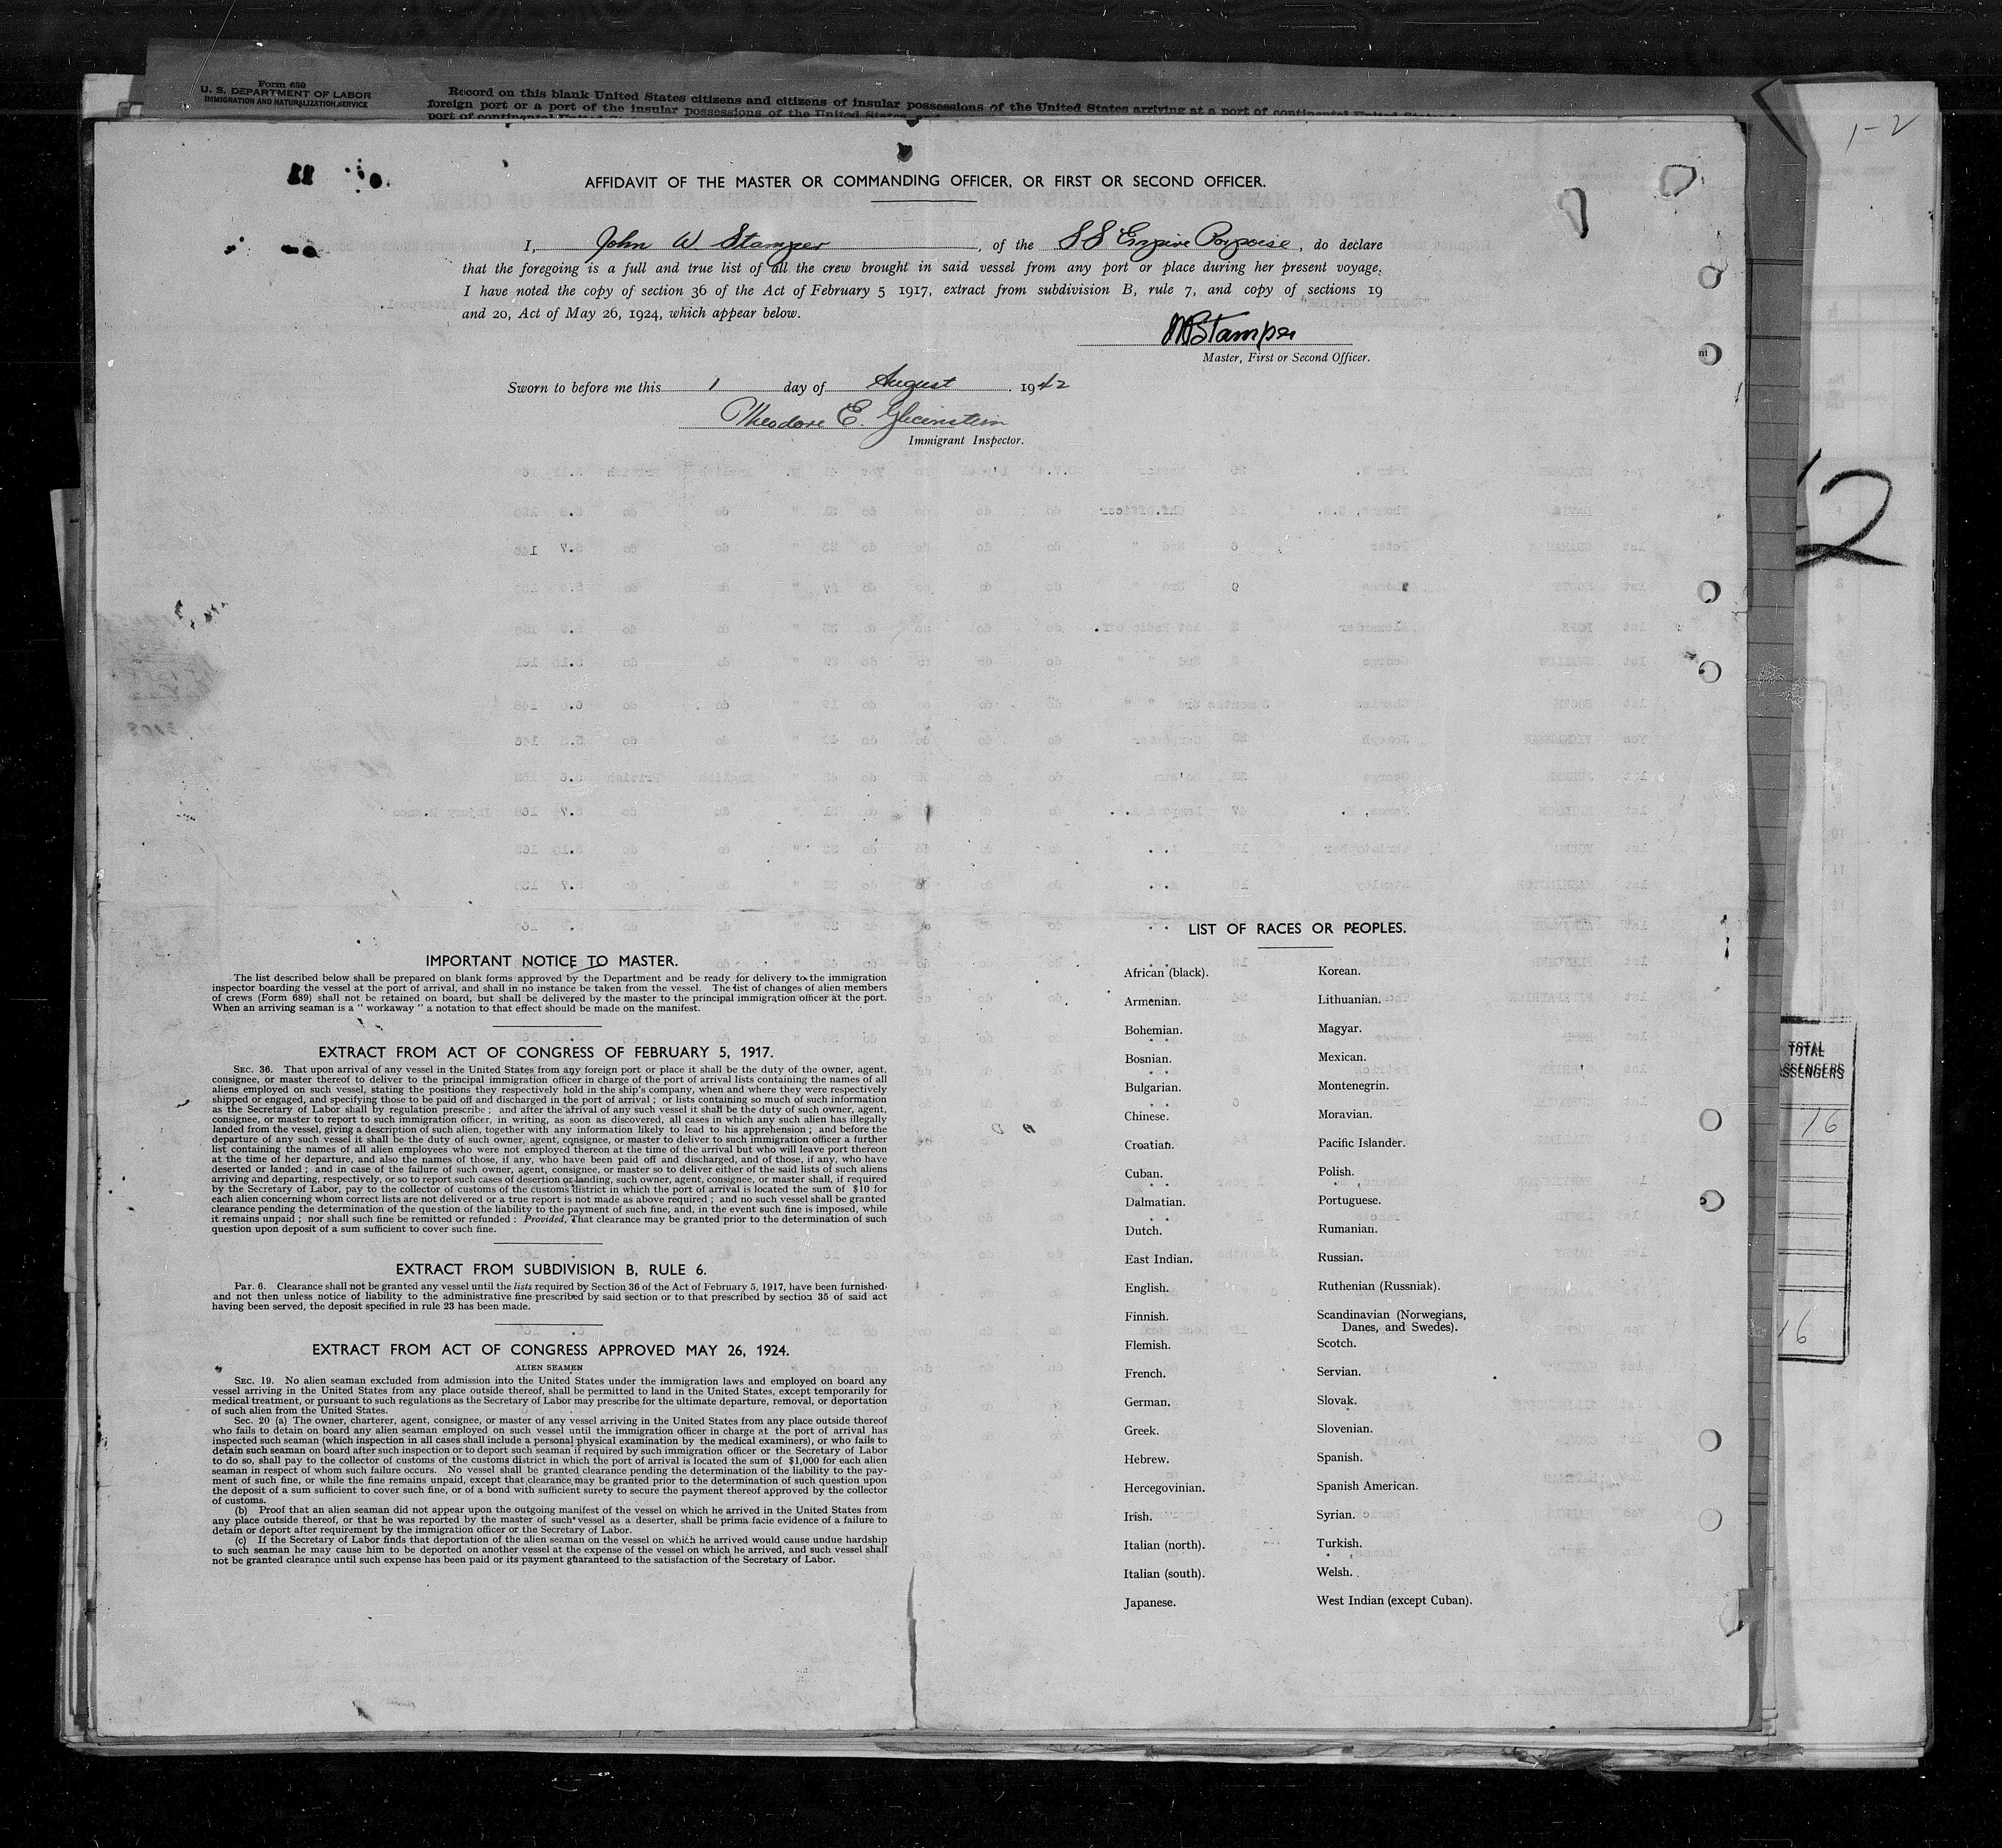 Form 680
U. S. DEPARTMENT OF LABOR
IMMIGRATION AND NATURALIZATION SERVICE
Record on this blank United States citizens and citizens of insular possessions of the United States arriving at a port of continental United States
foreign port or a port of the insular possessions of the United States
port of continental United
1-2
11
AFFIDAVIT OF THE MASTER OR COMMANDING OFFICER, OR FIRST OR SECOND OFFICER.
I, John W Stamper, of the SS Empire Porpoise, do declare
that the foregoing is a full and true list of all the crew brought in said vessel from any port or place during her present voyage.
I have noted the copy of section 36 of the Act of February 5 1917, extract from subdivision B, rule 7, and copy of sections 19
and 20, Act of May 26, 1924, which appear below.
Stamper
Master, First or Second Officer.
Sworn to before me this 1 day of August 1942
Theodore E.
Immigrant Inspector.
2
IMPORTANT NOTICE TO MASTER.
The list described below shall be prepared on blank forms approved by the Department and be ready for delivery to the immigration
inspector boarding the vessel at the port of arrival, and shall in no instance be taken from the vessel. The list of changes of alien members
of crews (Form 689) shall not be retained on board, but shall be delivered by the master to the principal immigration officer at the port.
When an arriving seaman is a " workaway " a notation to that effect should be made on the manifest.
EXTRACT FROM ACT OF CONGRESS OF FEBRUARY 5, 1917.
SEC. 36. That upon arrival of any vessel in the United States from any foreign port or place it shall be the duty of the owner, agent,
consignee, or master thereof to deliver to the principal immigration officer in charge of the port of arrival lists containing the names of all
aliens employed on such vessel, stating the positions they respectively hold in the ship's company, when and where they were respectively
shipped or engaged, and specifying those to be paid off and discharged in the port of arrival ; or lists containing so much of such information
as the Secretary of Labor shall by regulation prescribe ; and after the arrival of any such vessel it shall be the duty of such owner, agent,
consignee, or master to report to such immigration officer, in writing, as soon as discovered, all cases in which any such alien has illegally
landed from the vessel, giving a description of such alien, together with any information likely to lead to his apprehension ; and before the
departure of any such vessel it shall be the duty of such owner, agent, consignee, or master to deliver to such immigration officer a further
list containing the names of all alien employees who were not employed thereon at the time of the arrival but who will leave port thereon
at the time of her departure, and also the names of those, if any, who have been paid off and discharged, and of those, if any, who have
deserted or landed ; and in case of the failure of such owner, agent, consignee, or master so to deliver either of the said lists of such aliens
arriving and departing, respectively, or so to report such cases of desertion or landing, such owner, agent, consignee, or master shall, if required
by the Secretary of Labor, pay to the collector of customs of the customs district in which the port of arrival is located the sum of $10 for
each alien concerning whom correct lists are not delivered or a true report is not made as above required ; and no such vessel shall be granted
clearance pending the determination of the question of the liability to the payment of such fine, and, in the event such fine is imposed, while
it remains unpaid ; nor shall such fine be remitted or refunded : Provided, That clearance may be granted prior to the determination of such
question upon deposit of a sum sufficient to cover such fine.
EXTRACT FROM SUBDIVISION B, RULE 6.
PAR. 6. Clearance shall not be granted any vessel until the lists required by Section 36 of the Act of February 5, 1917, have been furnished
and not then unless notice of liability to the administrative fine prescribed by said section or to that prescribed by section 35 of said act
having been served, the deposit specified in rule 23 has been made.
EXTRACT FROM ACT OF CONGRESS APPROVED MAY 26, 1924.
ALIEN SEAMEN
SEC. 19. No alien seaman excluded from admission into the United States under the immigration laws and employed on board any
vessel arriving in the United States from any place outside thereof, shall be permitted to land in the United States, except temporarily for
medical treatment, or pursuant to such regulations as the Secretary of Labor may prescribe for the ultimate departure, removal, or deportation
of such alien from the United States.
Sec. 20 (a) The owner, charterer, agent, consignee, or master of any vessel arriving in the United States from any place outside thereof
who fails to detain on board any alien seaman employed on such vessel until the immigration officer in charge at the port of arrival has
inspected such seaman (which inspection in all cases shall include a personal physical examination by the medical examiners), or who fails to
detain such seaman on board after such inspection or to deport such seaman if required by such immigration officer or the Secretary of Labor
to do so, shall pay to the collector of customs of the customs district in which the port of arrival is located the sum of $1,000 for each alien
seaman in respect of whom such failure occurs. No vessel shall be granted clearance pending the determination of the liability to the pay-
ment of such fine, or while the fine remains unpaid, except that clearance may be granted prior to the determination of such question upon
the deposit of a sum sufficient to cover such fine, or of a bond with sufficient surety to secure the payment thereof approved by the collector
of customs.
(b) Proof that an alien seaman did not appear upon the outgoing manifest of the vessel on which he arrived in the United States from
any place outside thereof, or that he was reported by the master of such vessel as a deserter, shall be prima facie evidence of a failure to
detain or deport after requirement by the immigration officer or the Secretary of Labor.
(c) If the Secretary of Labor finds that deportation of the alien seaman on the vessel on which he arrived would cause undue hardship
to such seaman he may cause him to be deported on another vessel at the expense of the vessel on which he arrived, and such vessel shall
not be granted clearance until such expense has been paid or its payment guaranteed to the satisfaction of the Secretary of Labor.
LIST OF RACES OR PEOPLES.
African (black).
Armenian.
Bohemian.
Bosnian.
Bulgarian.
Chinese.
Croatian.
Cuban.
Dalmatian.
Dutch.
East Indian.
English.
Finnish.
Flemish.
French.
German.
Greek.
Hebrew.
Hercegovinian.
Irish.
Italian (north).
Italian (south).
Japanese.
Korean.
Lithuanian.
Magyar.
Mexican.
Montenegrin.
Moravian.
Pacific Islander.
Polish.
Portuguese.
Rumanian.
Russian.
Ruthenian (Russniak).
Scandinavian (Norwegians,
Danes, and Swedes).
Scotch.
Servian.
Slovak.
Slovenian.
Spanish.
Spanish American.
Syrian.
Turkish.
Welsh.
West Indian (except Cuban).
TOTAL
16
16